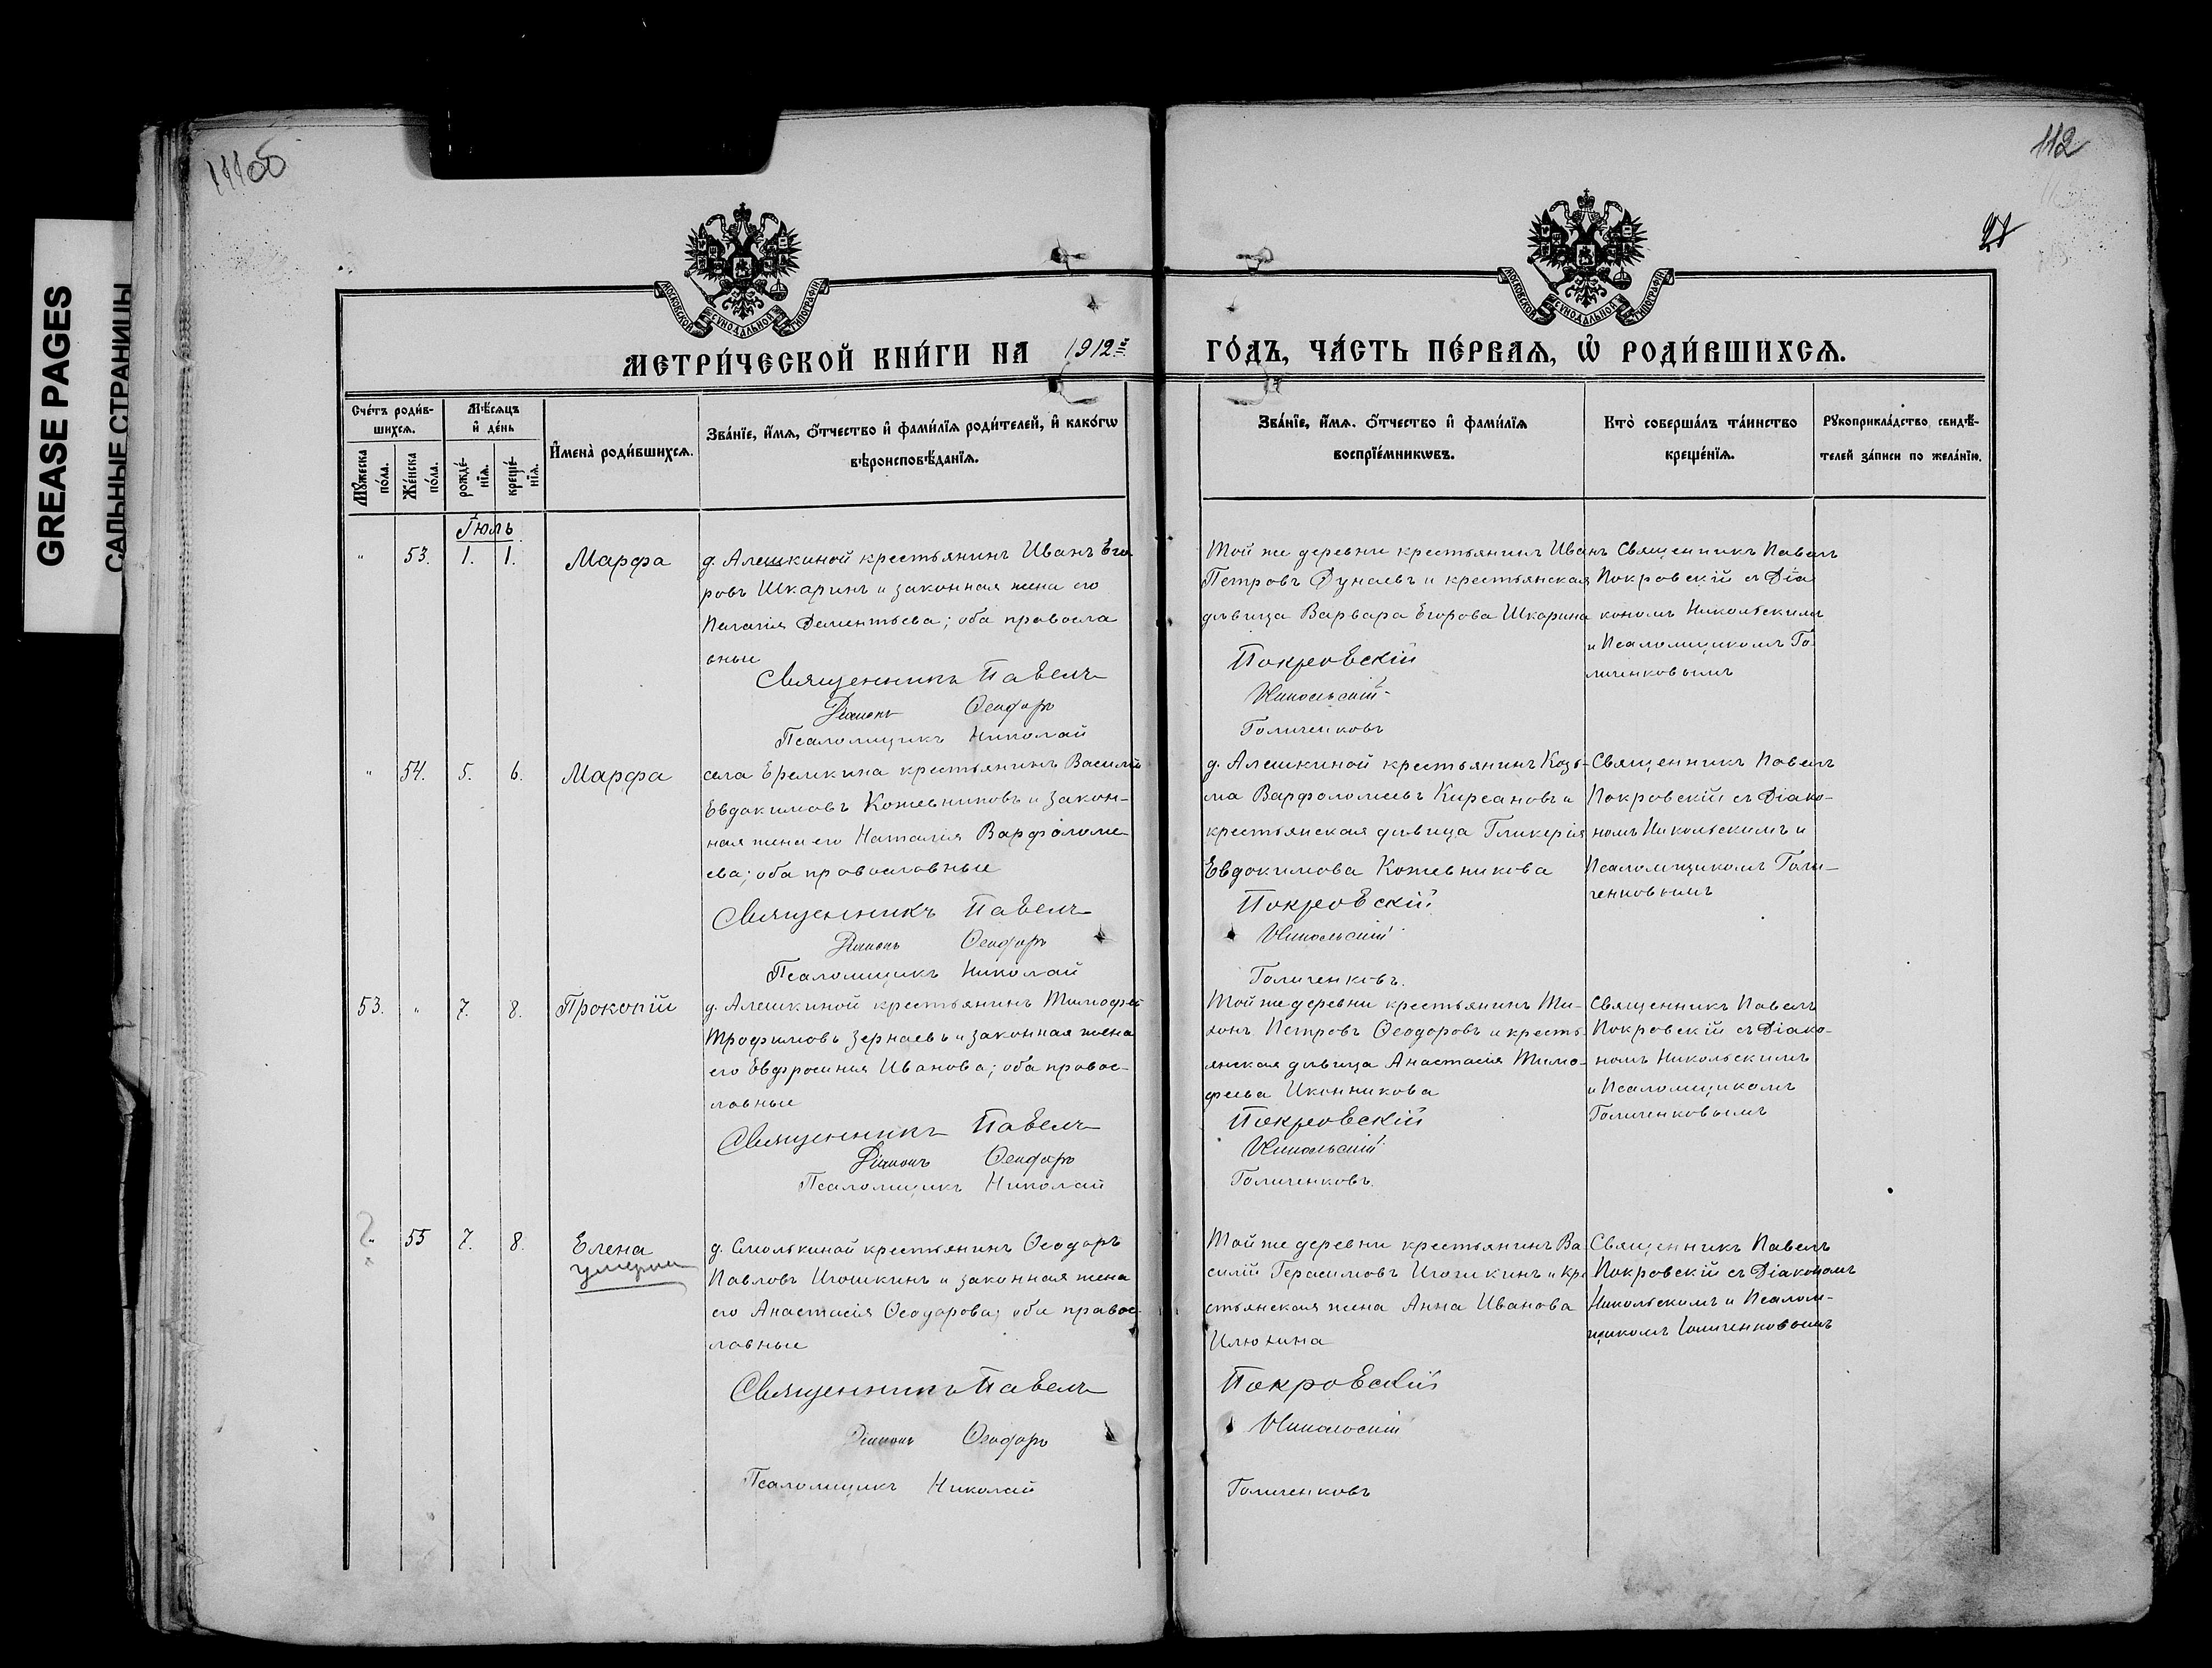 GREASE PAGES
САЛЬНЫЕ СТРАНИЦЫ
112
МОСКОВСКОЙ СѴНОДАЛЬНОЙ ТИПОГРАФІИ
МОСКОВСКОЙ СѴНОДАЛЬНОЙ ТИПОГРАФІИ
МЕТРИ́ЧЕСКОЙ КНИ́ГИ НА 1912й ГО́ДЪ, ЧА́СТЬ ПЕ́РВАѦ, Ѡ҆ РОДИ́ВШИХСѦ.
Сче́тъ роди́в-
шихсѧ.
Мѣ́сѧцъ
и҆ де́нь
И҆мена̀ роди́вшихсѧ.
Зва́нїе, и҆́мѧ, ѻ҆́тчество и҆ фами́лїѧ роди́телей, и҆ како́гѡ
вѣроисповѣ́данїѧ.
Мꙋ́жеска
по́ла.
Же́нска
по́ла.
рожде́-
нїѧ.
креще́-
нїѧ.
Зва́нїе, и҆́мѧ. ѻ҆́тчество и҆ фами́лїѧ
воспрїе́мникѡвъ.
Кто̀ соверша́лъ та́инство
креще́нїѧ.
Рꙋкоприкла́дство свидѣ́-
телей за́писи по жела́нїю.
Іюль
" 53. 1. 1. Марфа
д. Алешкиной крестьянинъ Иванъ Его
ровъ Шкаринъ и законная жена его
Пелагія Дементьева; оба правосла
вные
Священникъ Павелъ
Діаконъ Ѳеодоръ
Псаломщикъ Николай
Той же деревни крестьянинъ Иванъ
Петровъ Дунаевъ и крестьянская
дѣвица Варвара Егорова Шкарина
Покровскій
Никольскій
Голиченковъ
Священникъ Павелъ
Покровскій съ Діа
кономъ Никольскимъ
и Псаломщикомъ Го
личенковымъ
" 54. 5. 6. Марфа
села Еремкина крестьянинъ Василій
Евдокимовъ Кожевниковъ и закон-
ная жена его Наталія Варфоломе
ева; оба православные
Священникъ Павелъ
Діаконъ Ѳеодоръ
Псаломщикъ Николай
д. Алешкиной крестьянинъ Козь-
ма Варфоломеевъ Кирсановъ и
крестьянская дѣвица Гликерія
Евдокимова Кожевникова
Покровскій
Никольскій
Голиченковъ.
Священникъ Павелъ
Покровскій съ Діако-
номъ Никольскимъ и
Псаломщикомъ Голи-
ченковымъ
53. " 7. 8. Прокопій
д. Алешкиной крестьянинъ Тимофей
Трофимовъ Зернаевъ и законная жена
его Евфросинія Иванова; оба правос-
лавные
Священникъ Павелъ
Діаконъ Ѳеодоръ
Псаломщикъ Николай
Той же деревни крестьянинъ Ти-
хонъ Петровъ Ѳеодоровъ и кресть
янская дѣвица Анастасія Тимо-
феева Иконникова
Покровскій
Никольскій
Голиченковъ.
Священникъ Павелъ
Покровскій съ Діако-
номъ Никольскимъ
и Псаломщикомъ
Голиченковымъ
" 55 7. 8. Елена
умерла
д. Смолькиной крестьянинъ Ѳеодоръ
Павловъ Игошкинъ и законная жена
его Анастасія Ѳеодорова; оба правос-
лавные
Священникъ Павелъ
Діаконъ Ѳеодоръ
Псаломщикъ Николай
Той же деревни крестьянинъ Ва
силій Герасимовъ Игошкинъ и кре
стьянская жена Анна Иванова
Илюхина
Покровскій
Никольскій
Голиченковъ
Священникъ Павелъ
Покровскій съ Діакономъ
Никольскимъ и Псалом-
щикомъ Голиченковымъ